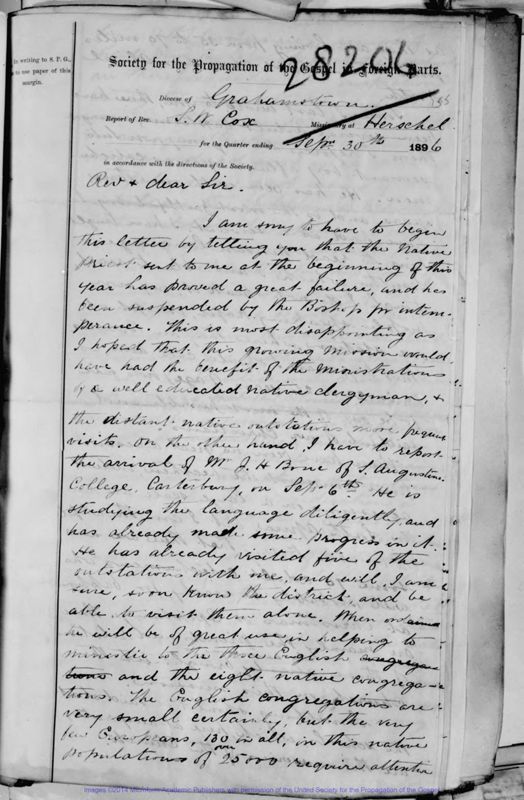 In writing to S. P. G.,
to use paper of this
margin.
28206
Society for the Propagation of the Gospel in Foreign Parts.
Diocese of Grahamstown.
Report of Rev. S. W Cox Missionary at Herschel
for the Quarter ending Sepr 30th 1896
in accordance with the directions of the Society.
Rev & dear Sir.
I am sorry to have to begin
this letter by telling you that the Native
Priest sent to me at the beginning of this
year has proved a great failure, and has
been suspended by the Bishop for intem-
perance. This is most disappointing as
I hoped that this growing Mission would
have had the benefit of the Ministrations
of a well educated native clergyman, &
the distant native outstations more frequent
visits. On the other hand I have to report
the arrival of Mr J. H Bone of S. Augustine
College, Canterbury, on Sep 6th. He is
studying the language diligently, and
has already made some progress in it.
He has already visited five of the
outstations with me, and will, I am
sure, soon know the district, and be
able to visit them alone. When ordained
he will be of great use in helping to
minister to the three English congrega-
tions and the eight native congrega-
tions. The English congregations are
very small certainly, but the very
few Europeans, 130 in all, in this native
populations of over 25000 require attention
Images ©2014 Microform Academic Publishers with permission of the United Society for the Propagation of the Gospel